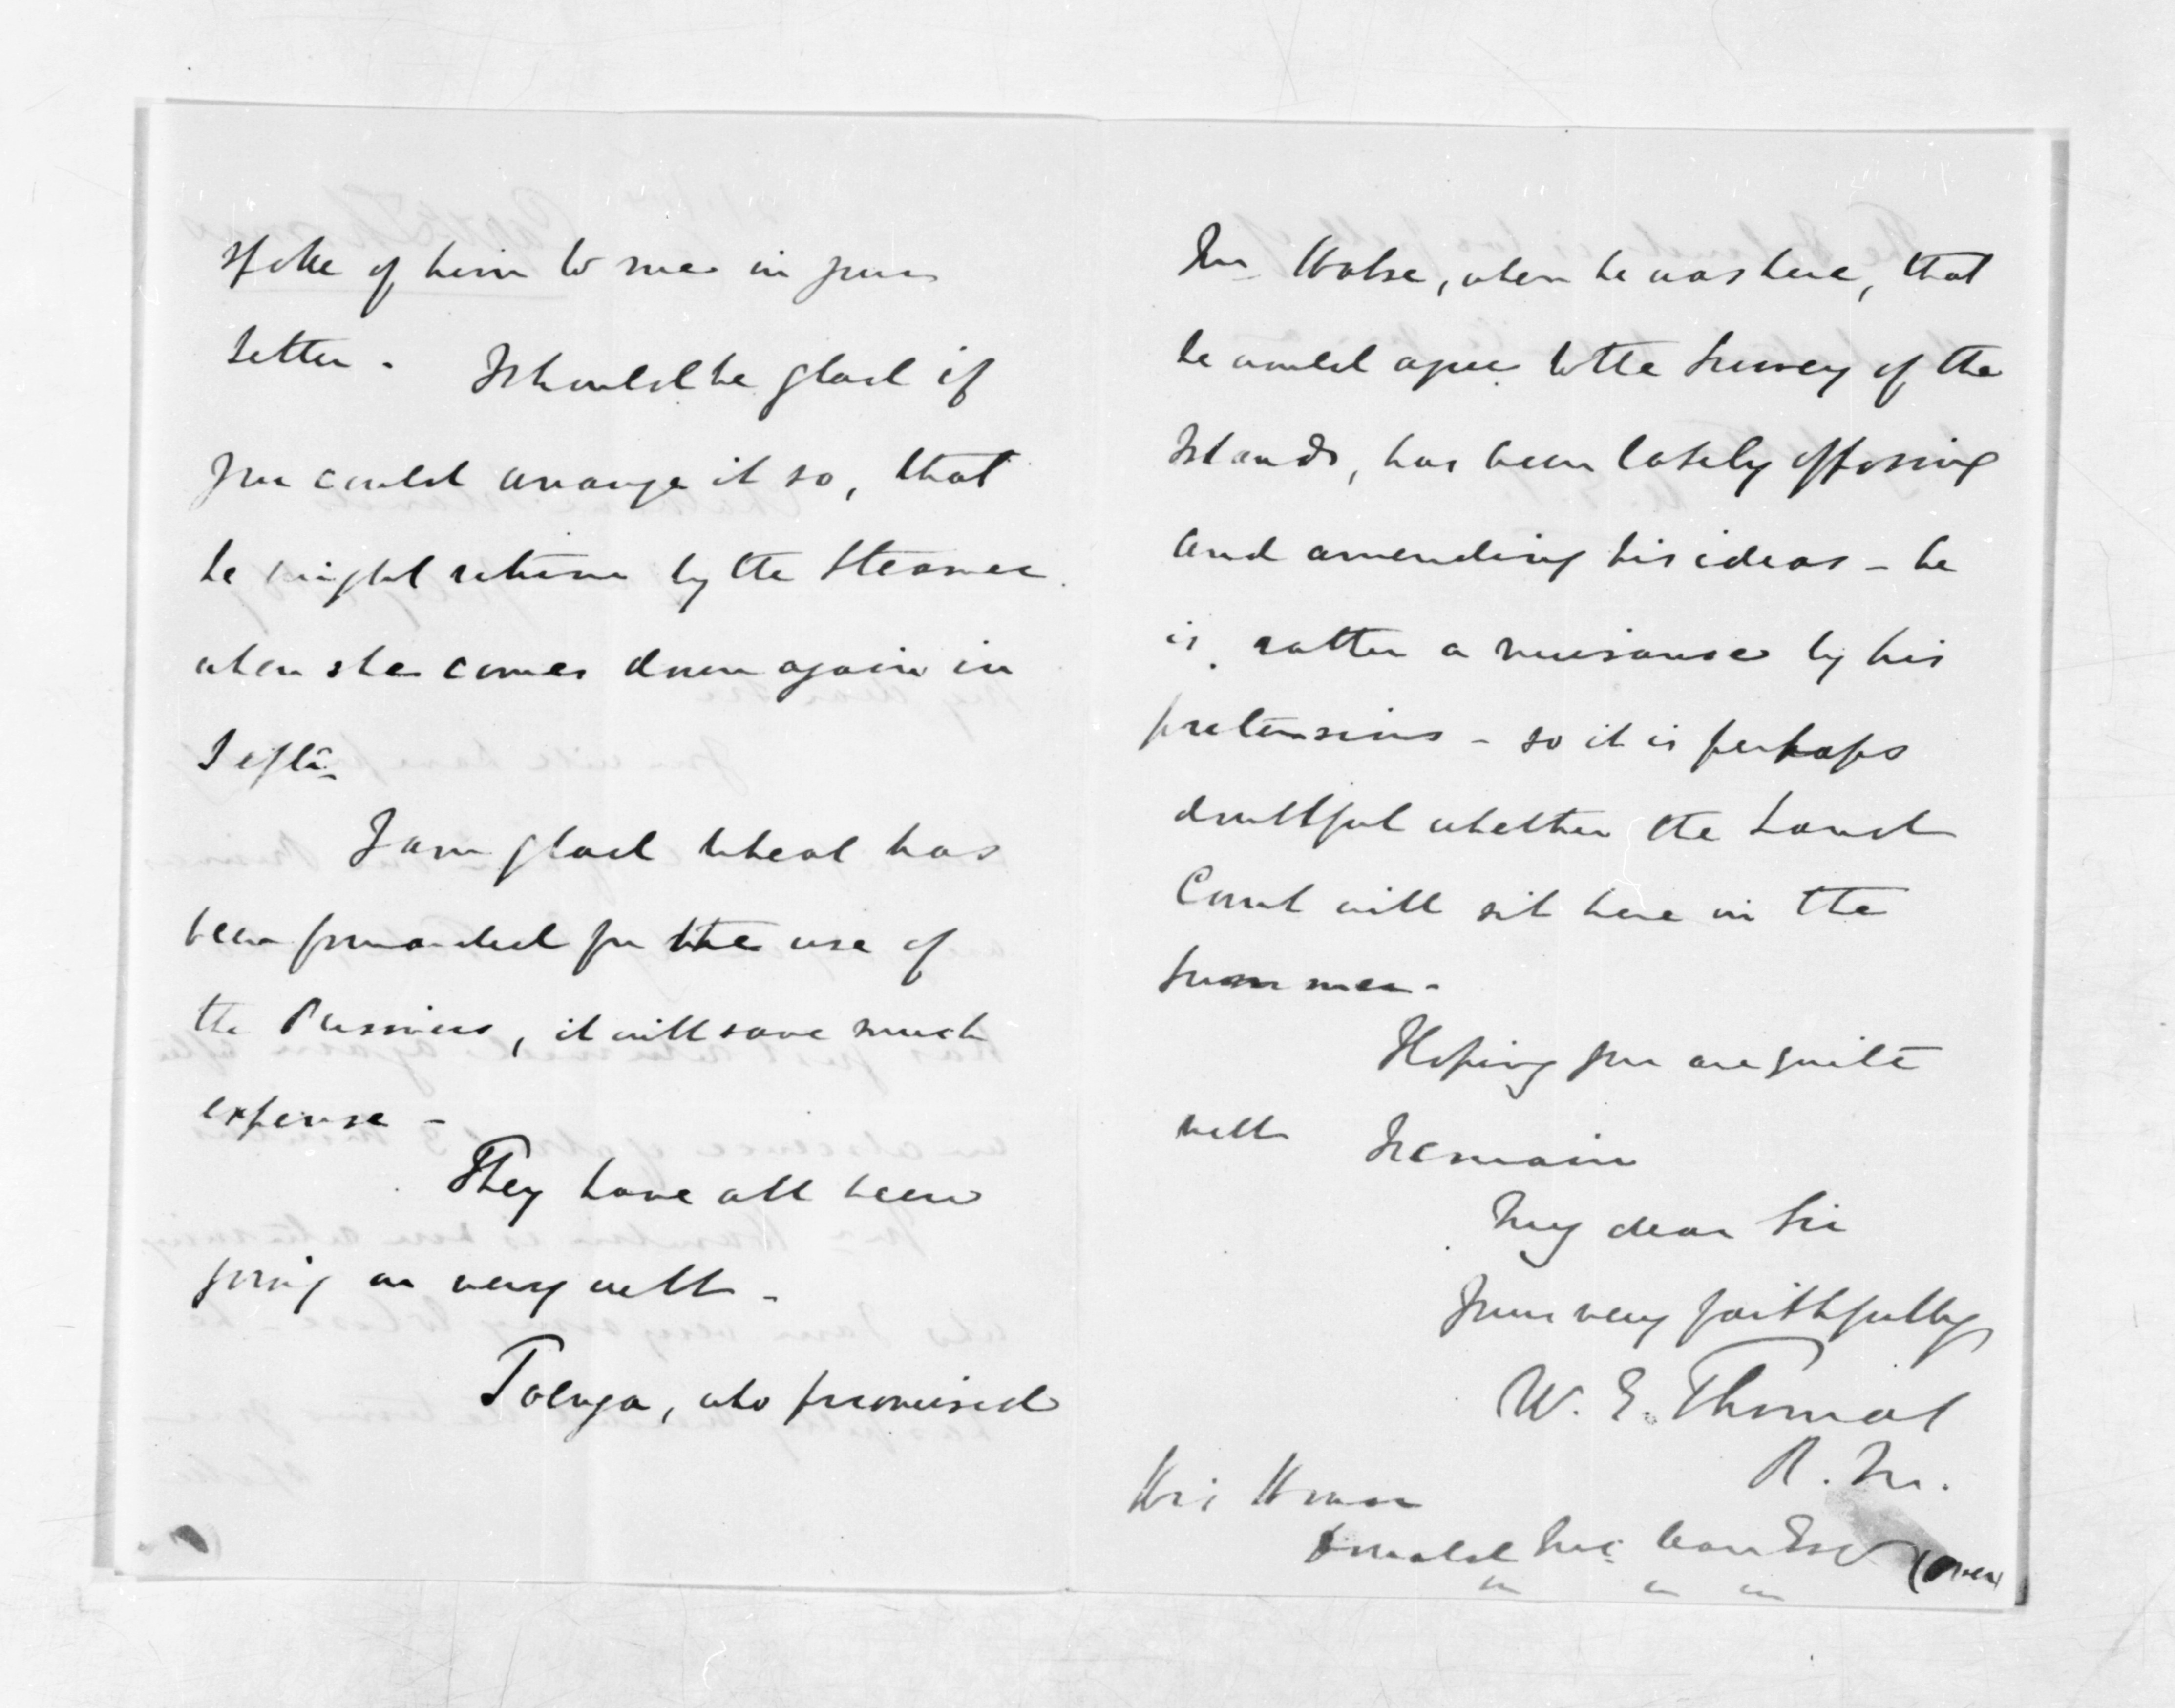 spoke of him to me in your
letter - I should be glad if
you could arrange it so, that
he might return by the Steamer
when she comes down again in
Septr.
I am glad wheat has
been forwarded for the use of
the Prisoners, it will save much
expense -
They have all been
going on very well -
Toenga, who promised
Mr Halse, when he was here, that
he would agree to the Survey of the
Islands, has been lately opposing
and amending his ideas - he
is rather a nuisance by his
pretensions - so it is perhaps
doubtful whether the Land
Court will sit here in the
Summer -
Hoping you are quite
well I remain
My dear Sir
Yours very faithfully
W. E. Thomas
R. M.
His Honor
Donald McLean Esqr
(Over)